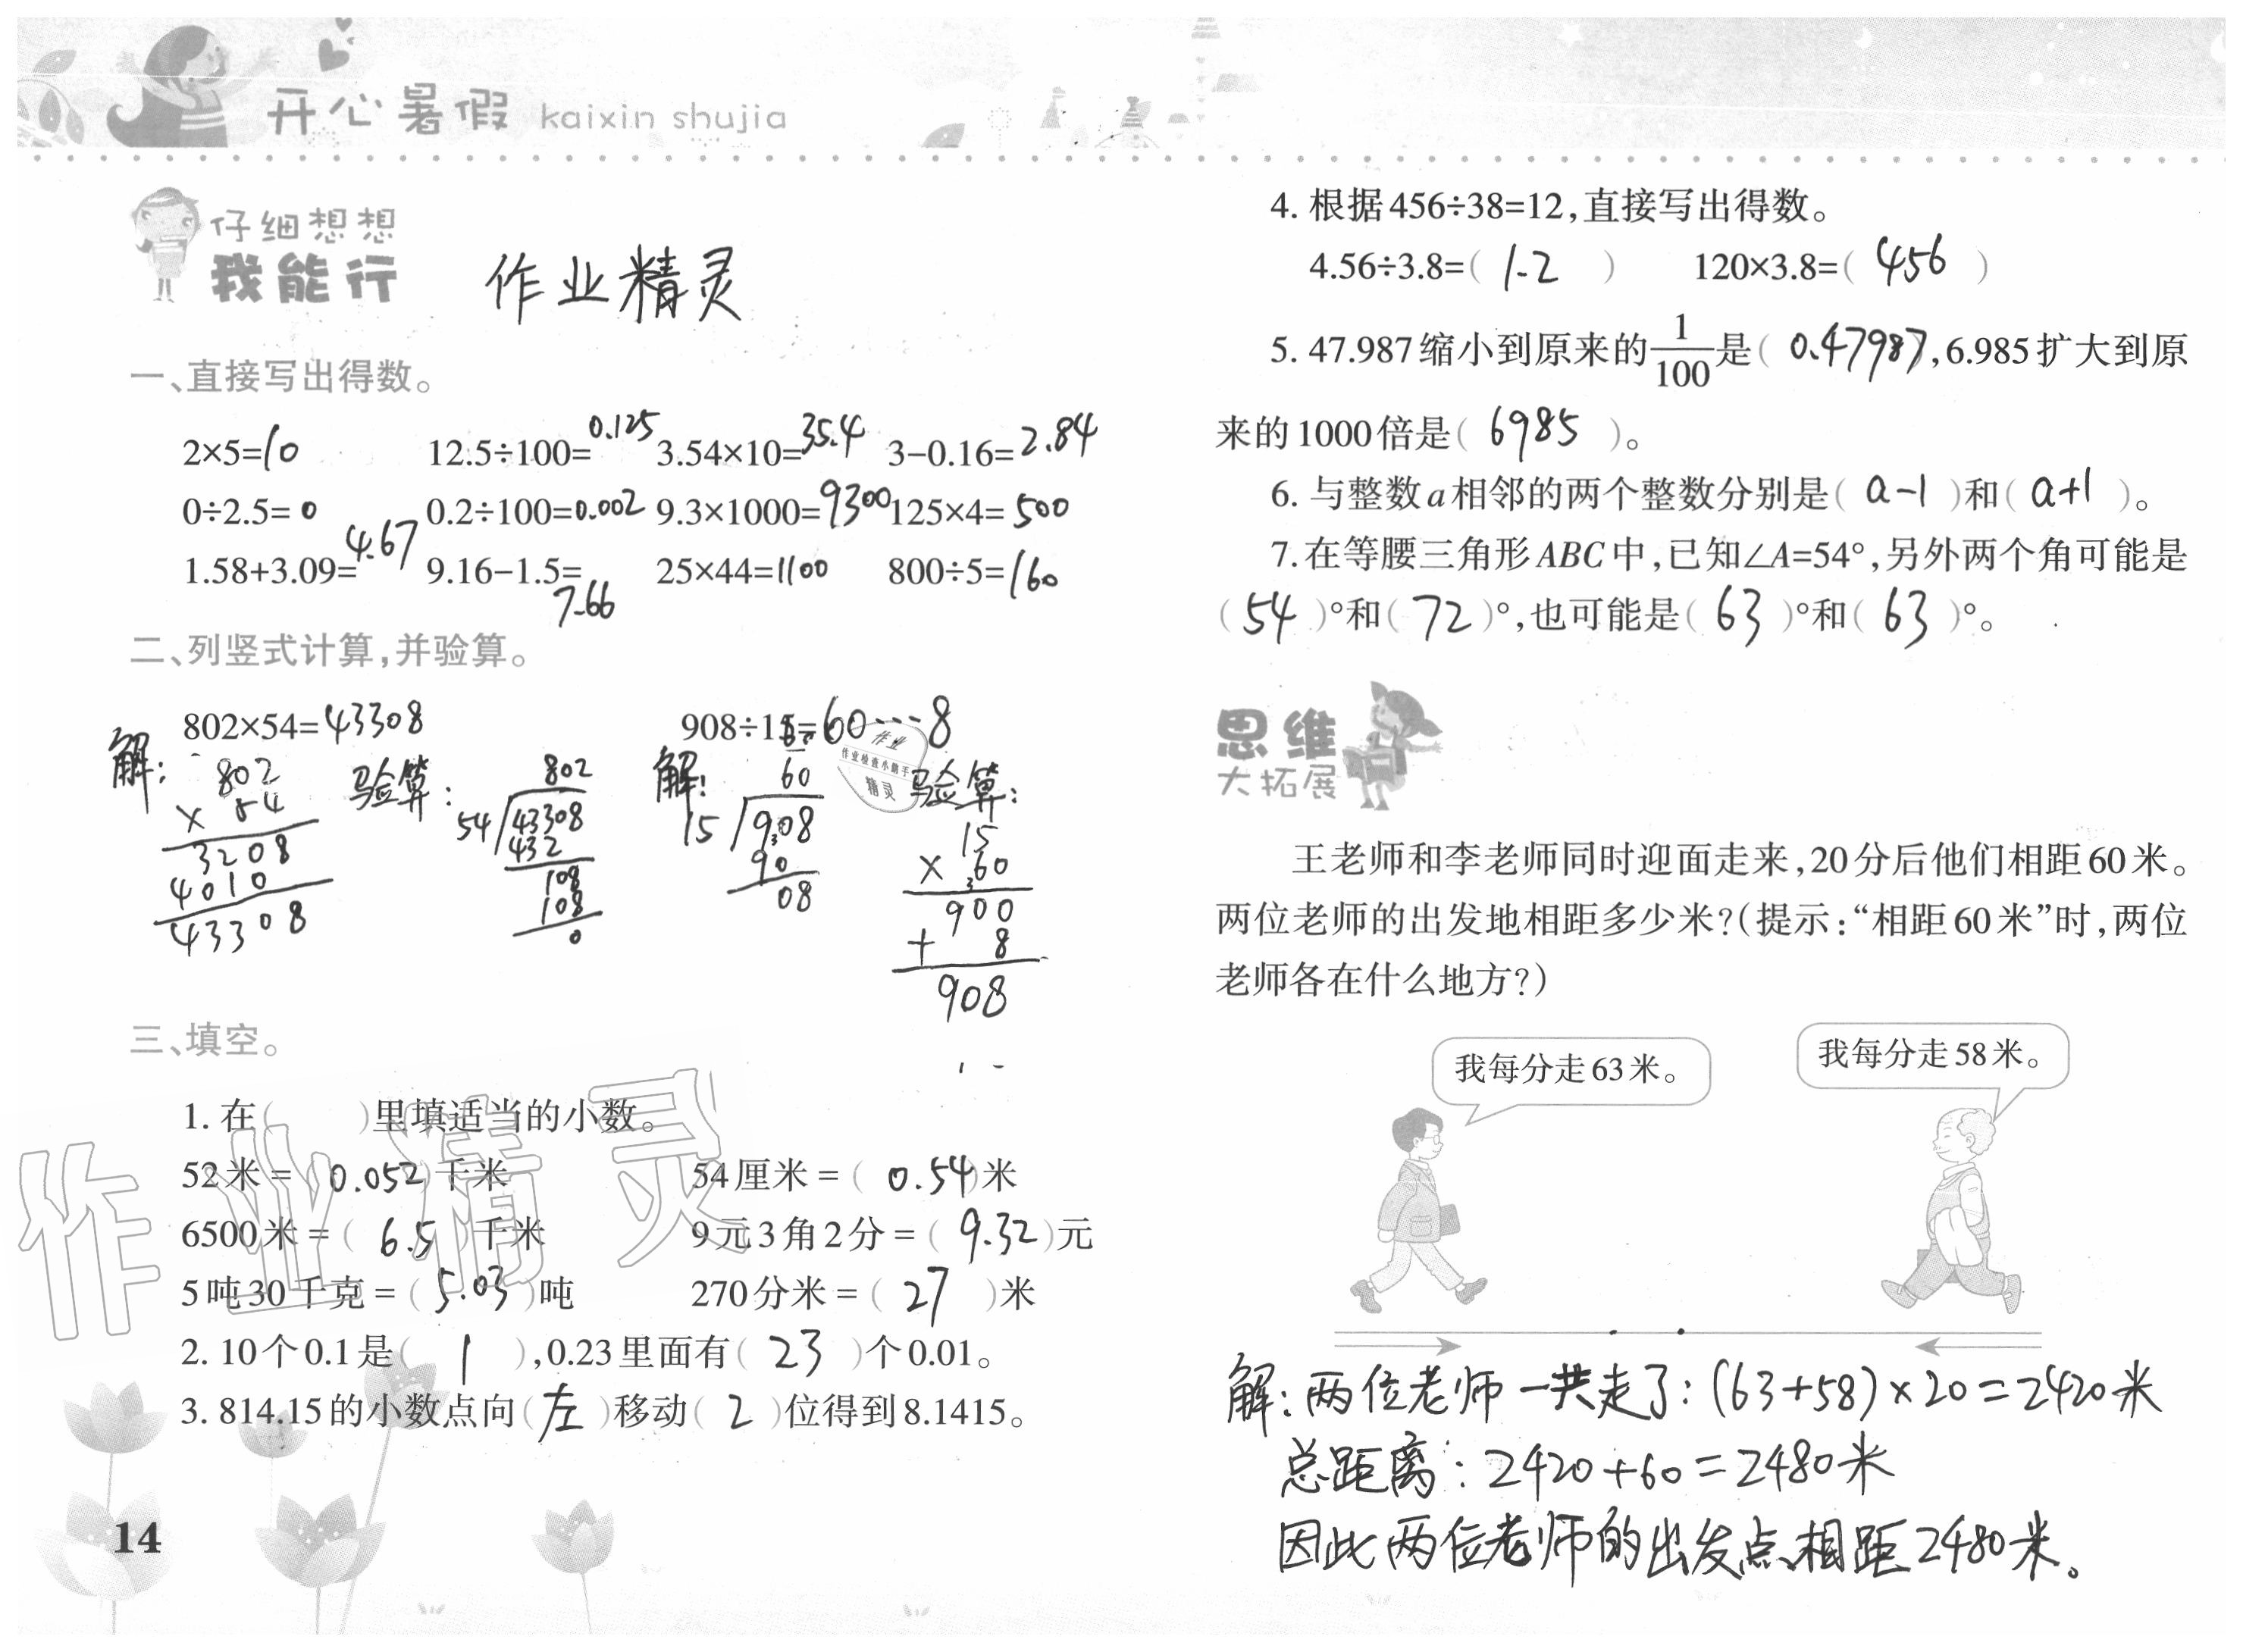 开心暑假 kaixin shujia
仔细想想
我能行
作业精灵
一、直接写出得数。
2×5=10 12.5÷100=0.125 3.54×10=35.4 3-0.16=2.84
0÷2.5=0 0.2÷100=0.002 9.3×1000=9300 125×4=500
1.58+3.09=4.67 9.16-1.5=7.66 25×44=1100 800÷5=160
二、列竖式计算,并验算。
802×54=43308 908÷15=60···8
解:
802
× 54
3208
4010
43308
验算:
802
54 43308
432
108
108
0
解:
60
15 908
90
08
验算:
15
× 60
900
+ 8
908
作业
作业检查小助手
精灵
三、填空。
1. 在( )里填适当的小数。
52米= 0.052)千米 54厘米=( 0.54)米
6500米=( 6.5 )千米 9元3角2分=( 9.32)元
5吨30千克=( 5.03 )吨 270分米=( 27 )米
2. 10个0.1是( 1 ),0.23里面有( 23 )个0.01。
3. 814.15的小数点向(左)移动( 2 )位得到8.1415。
作业精灵
14
4. 根据456÷38=12,直接写出得数。
4.56÷3.8=( 1.2 ) 120×3.8=( 456 )
5. 47.987缩小到原来的1/100是( 0.47987),6.985扩大到原
来的1000倍是( 6985 )。
6. 与整数a相邻的两个整数分别是( a-1 )和( a+1 )。
7.在等腰三角形ABC中,已知∠A=54°,另外两个角可能是
( 54 )°和( 72 )°,也可能是( 63 )°和( 63 )°。
思维
大拓展
王老师和李老师同时迎面走来,20分后他们相距60米。
两位老师的出发地相距多少米?(提示:“相距60米”时,两位
老师各在什么地方?)
我每分走63米。
我每分走58米。
解:两位老师一共走了:(63+58)×20=2420米
总距离:2420+60=2480米
因此两位老师的出发点相距2480米。